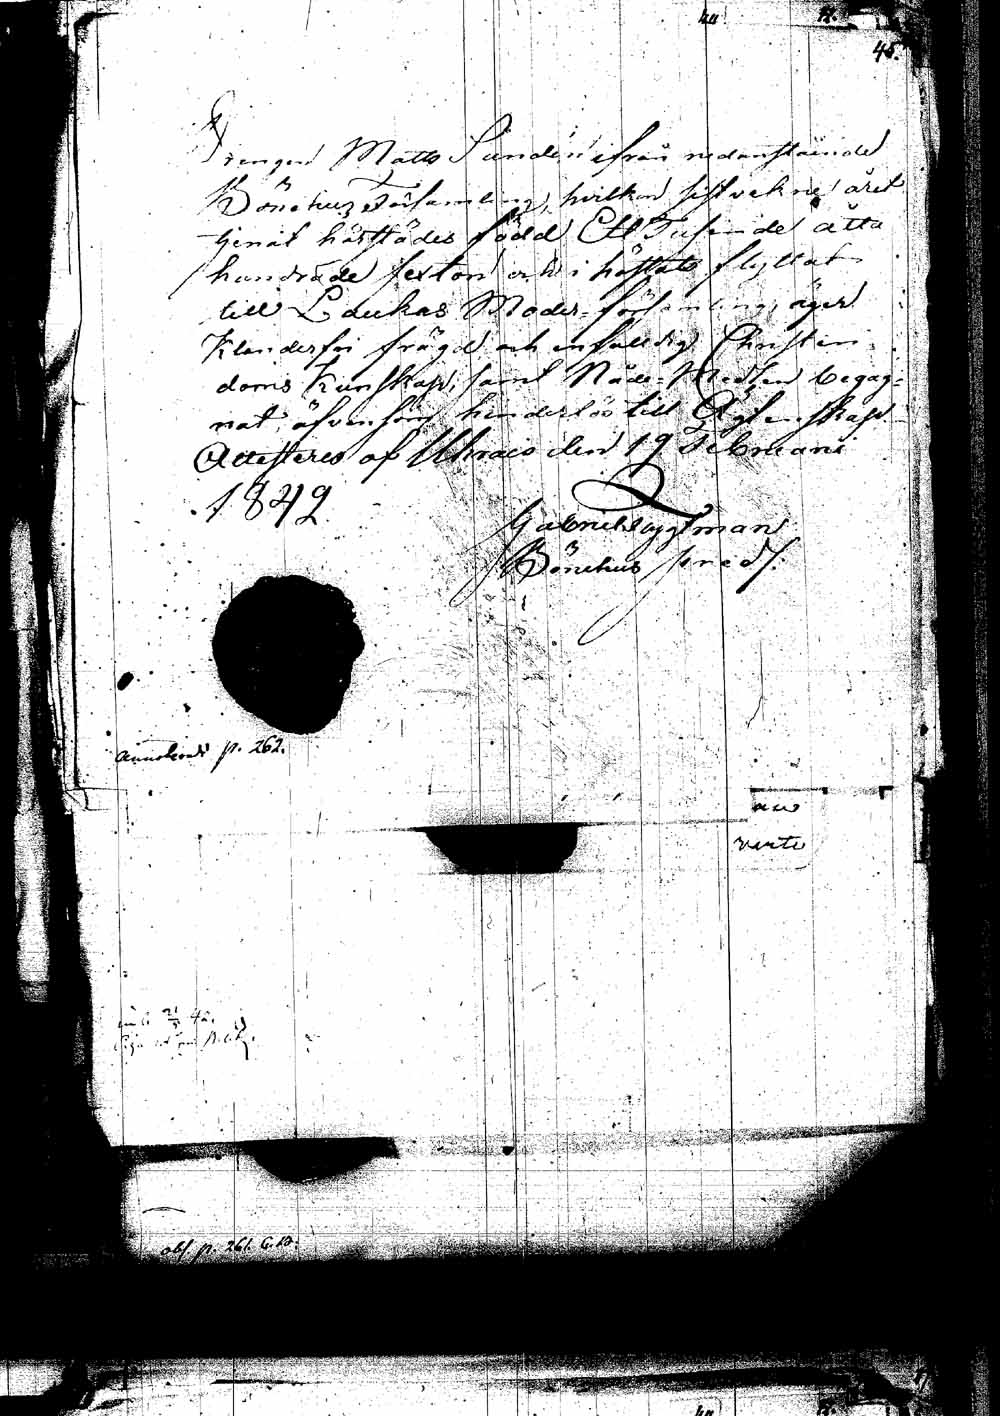 45.
Drengen Matts Sundén ifrån nedanstående
Bönehus Församling, hvilken sistvekne året
tjenat härstädes född Ett Tusende åtta
hundrade sexton och i höstas flyttat
till Laukas Moder-församling, äger
Klanderfri frägd och enfaldig Christen-
doms Kunskap, samt Nåde-Medlen begag-
nat; äfvensom hinderlös till Ägtenskap.
Attesteras af Uhrais den 19 Februarii
1849
Gabriel Toggtman
Bönehus pred.
Annoterat p. 262.
verte
obs. p. 261.